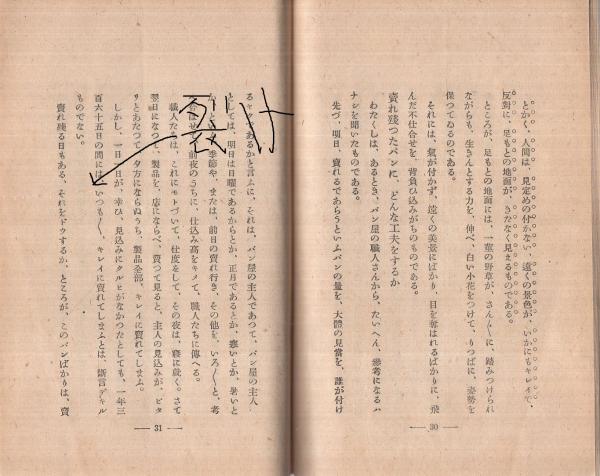 とかく、人間は、見定めの付かない、遠くの景色が、いかにもキレイで、
反對に、足もとの地面が、きたなく見えるものである。
ところが、足もとの地面には、一莖の野草が、さん／＼に、踏みつけられ
ながらも、生きんとする力を、伸べ、白い小花をつけて、りつぱに、姿勢を
保つてゐるのである。
それには、氣が付かず、遠くの美景にばかり、目を奪はれるばかりに、飛
んだ不仕合せを、背負ひ込みがちのものである。
賣れ殘つたパンに、どんな工夫をするか
わたくしは、あるとき、パン屋の職人さんから、たいへん、參考になるハ
ナシを聞いたものである。
先づ、明日、賣れるであらうといふパンの量を、大體の見當を、誰が付け
— 30 —
るヤ であるかと言ふに、それは、パン屋の主人であつて、パン屋の主人
としては、明日は日曜であるからとか、正月であるとか、寒いとか、暑いと
か、 季節や、または、前日の賣れ行き、その他を、いろ／＼と、考
せ 前夜のうちに、仕込み高をキメて、職人たちに傳へる。
職人たちは、これにモトづいて、仕度をして、その夜は、寢に就く。さて
翌日になつて、製品を、店にならべ、賣つて見ると、主人の見込みが、ピタ
リとあたつて、夕方にならぬうち、製品全部、キレイに賣れてしまふ。
しかし、一日 日が、幸ひ、見込みにクルヒがなかつたとしても、一年三
百六十五日の間には、いつも／＼、キレイに賣れてしまふとは、斷言デキル
ものでない。
賣れ殘る日もある、それをドウするか、ところが、このパンばかりは、賣
— 31 —